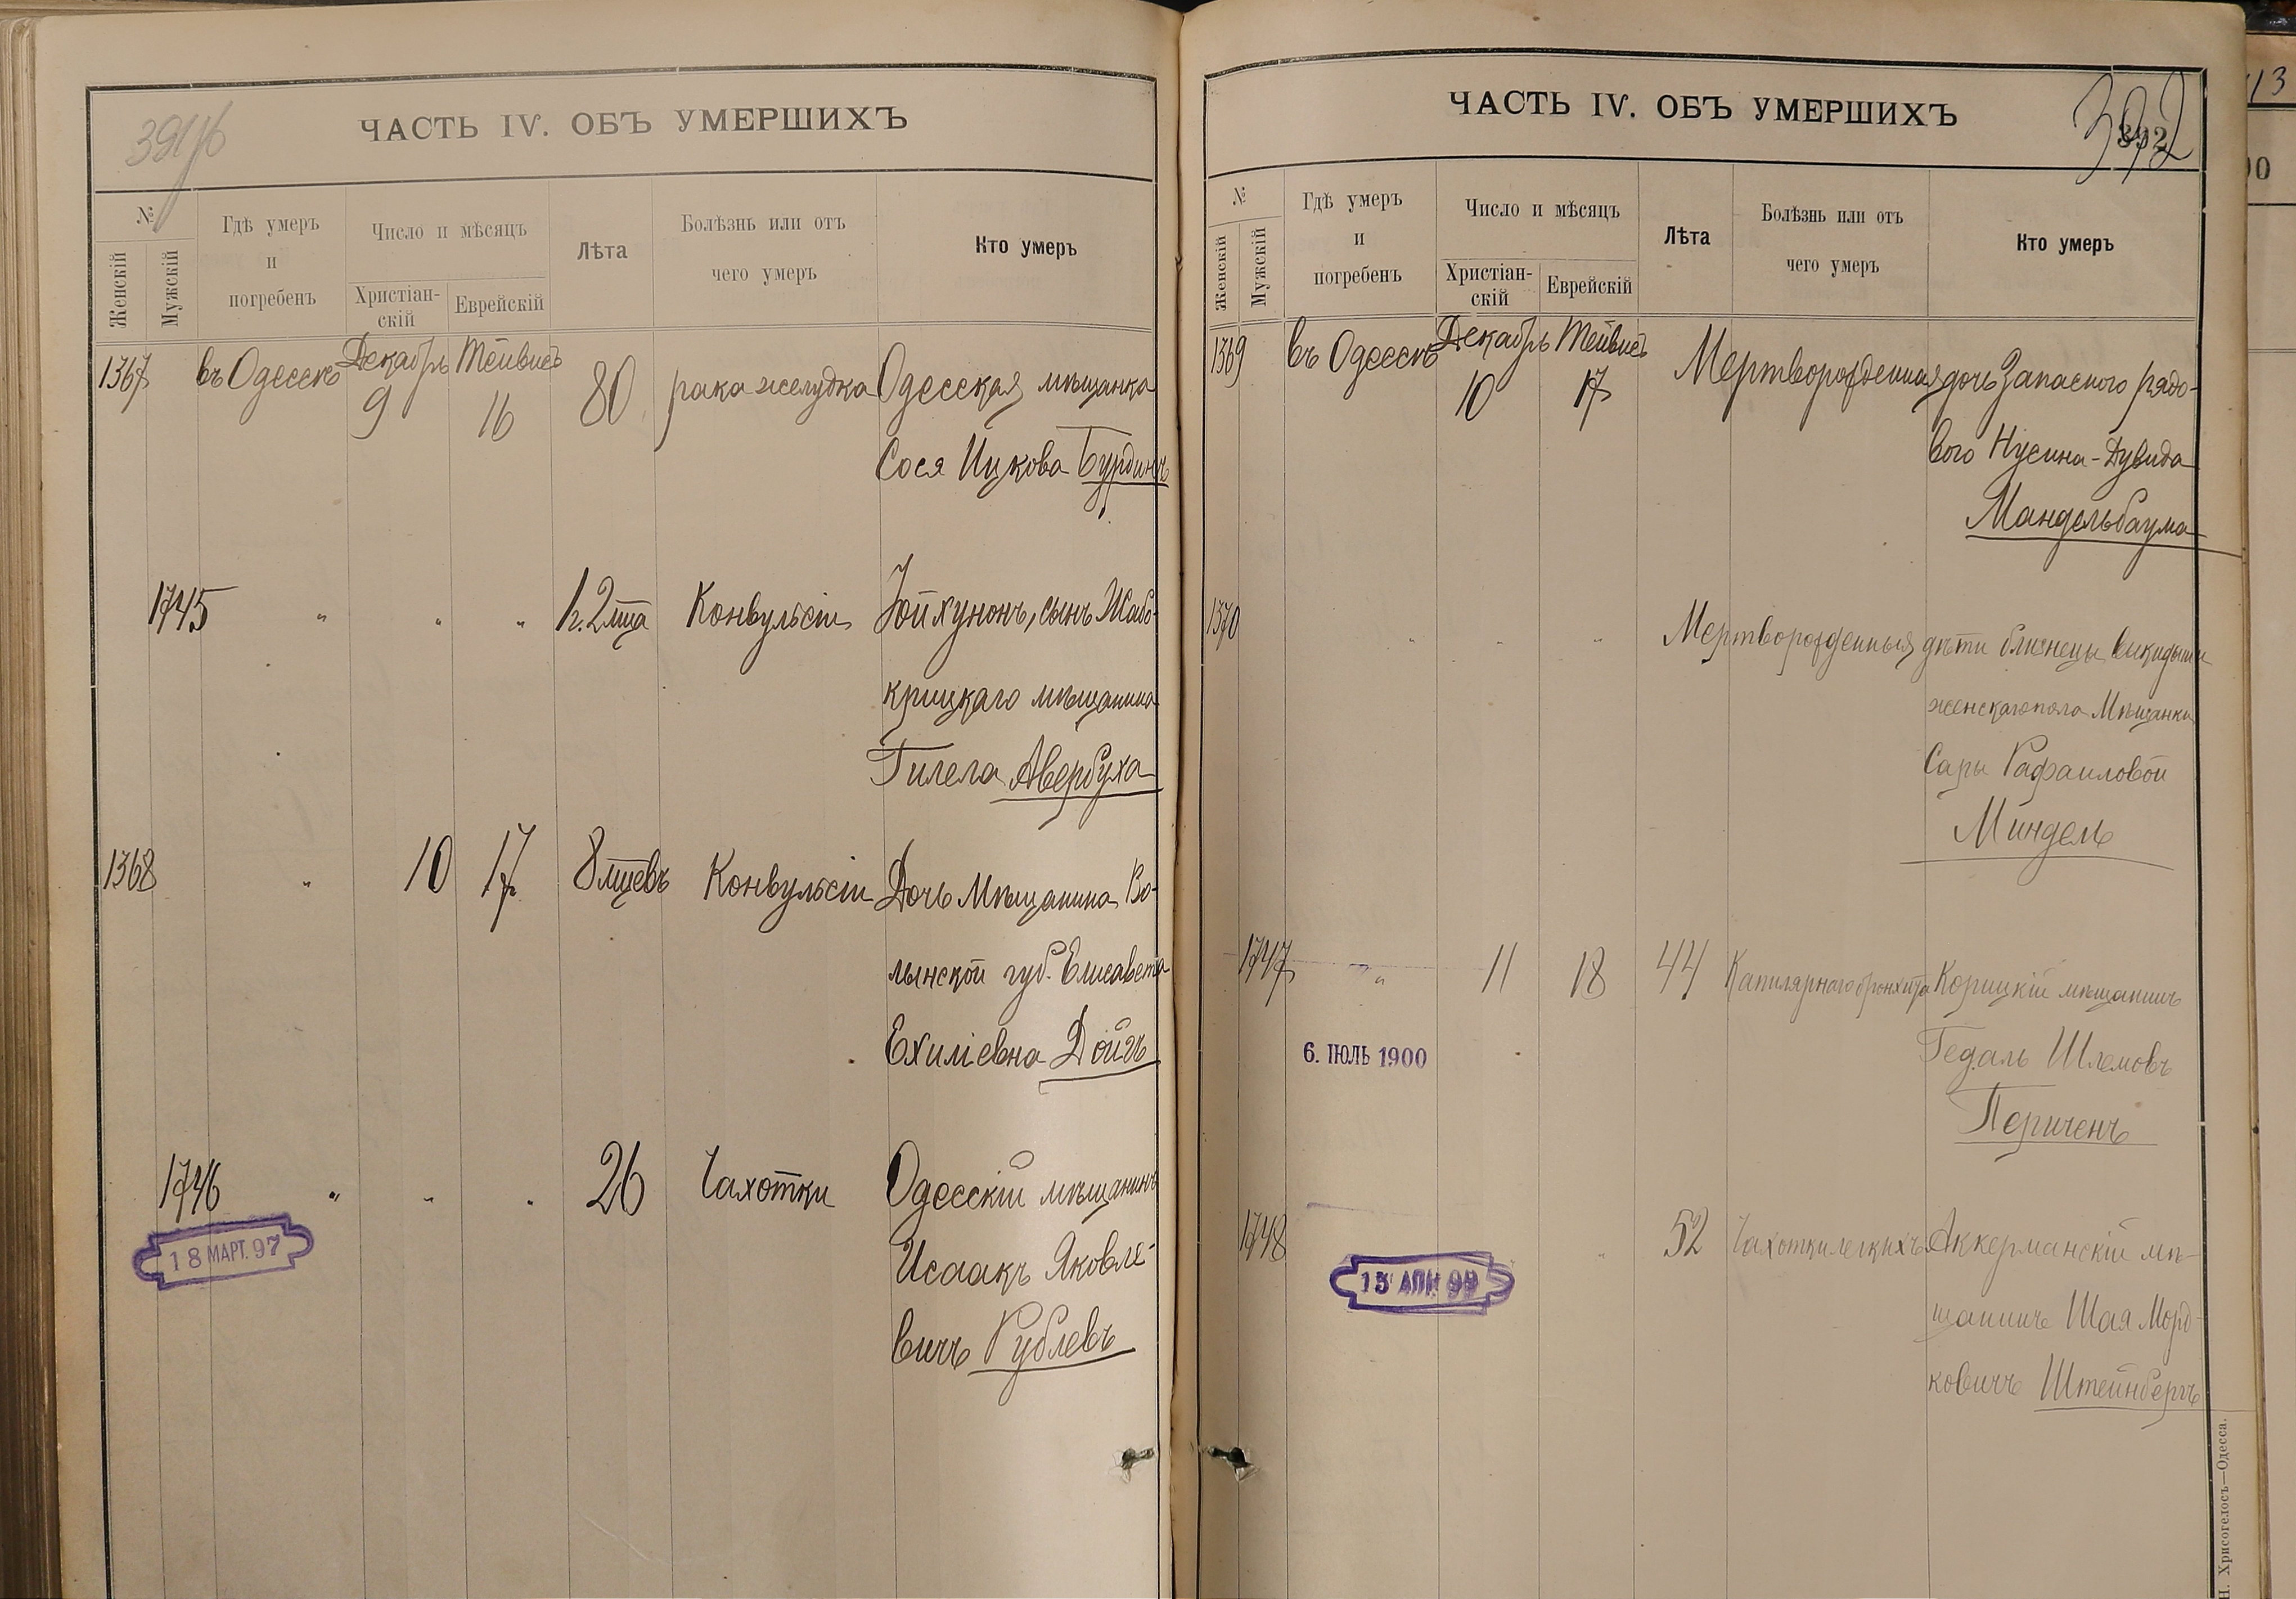 391/6
ЧАСТЬ IV. ОБЪ УМЕРШИХЪ
№
Женскій
Мужскій
Гдѣ умеръ
и
погребенъ
Число и мѣсяцъ
Христіан-
скій
Еврейскій
Лѣта
Болѣзнь или отъ
чего умеръ
Кто умеръ
1367 въ Одессѣ Декабрь 9 Тейвисъ 16 80 рака желудка Одесская мѣщанка
Сося Ицкова Бурдинъ
1745 " " " 1 г. 2 мца Конвульсіи Іойхунонъ, сынъ Жабо-
крицкаго мѣщанина
Гилела Авербуха
1368 " 10 17 8 мцевъ Конвульсіи Дочь Мѣщанина Во-
лынской губ. Елисавета
Ехиліевна Дойчъ
1746 " " " 26 Чахотки Одесскій мѣщанинъ
Исаакъ Яковле-
вичъ Рублевъ
18 МАРТ. 97
ЧАСТЬ IV. ОБЪ УМЕРШИХЪ
392
392
№
Женскій
Мужскій
Гдѣ умеръ
и
погребенъ
Число и мѣсяцъ
Христіан-
скій
Еврейскій
Лѣта
Болѣзнь или отъ
чего умеръ
Кто умеръ
1369 въ Одессѣ Декабрь 10 Тейвисъ 17 Мертворожденная дочь Запасного рядо-
вого Нусина-Дувида
Мандельбаума
1370 " " " Мертворожденныя дѣти близнецы выкидыши
женскаго пола Мѣщанки
Сары Рафаиловой
Миндель
1747 " 11 18 44 Капилярнаго бронхита Корицкій мѣщанинъ
Гедаль Шлемовъ
6. ІЮЛЬ 1900
Перичень
1748 " 52 Чахотки легкихъ Аккерманскій мѣ-
щанинъ Шая Морд-
ковичъ Штейнбергъ
15 АПР. 99
Н. Хрисогелосъ—Одесса.
13
00